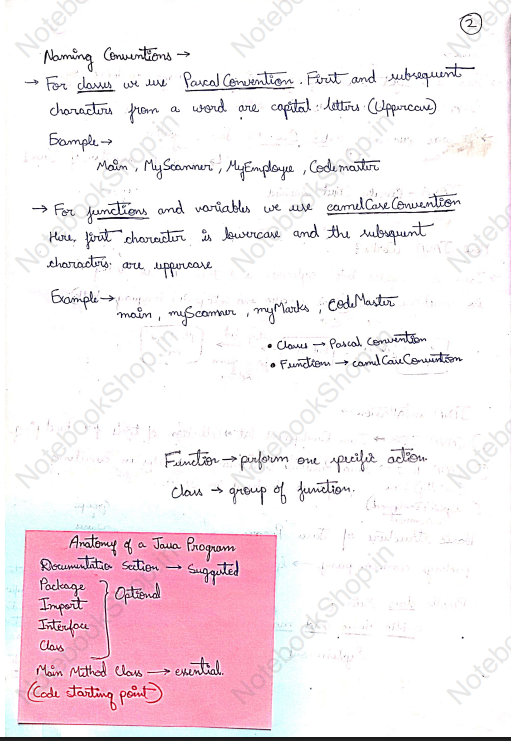 2
Naming Conventions →
→ For classes we use Pascal Convention. First and subsequent
characters from a word are capital letters (Uppercase)
Example →
Main, MyScanner, MyEmployee, Codemaster
→ For functions and variables we use camelCaseConvention
Here, first character is lowercase and the subsquent
characters are uppercase
Example →
main, myScanner, myMarks, CodeMaster
• Classes → Pascal Convention
• Function → camelCaseConvention
Function → perform one specific action.
Class → group of function.
Anatomy of a Java Program
Documentation Section → Suggested
Package
Import
Interface
Class
} Optional
Main Method Class → essential.
(Code starting point)
NotebookShop.in